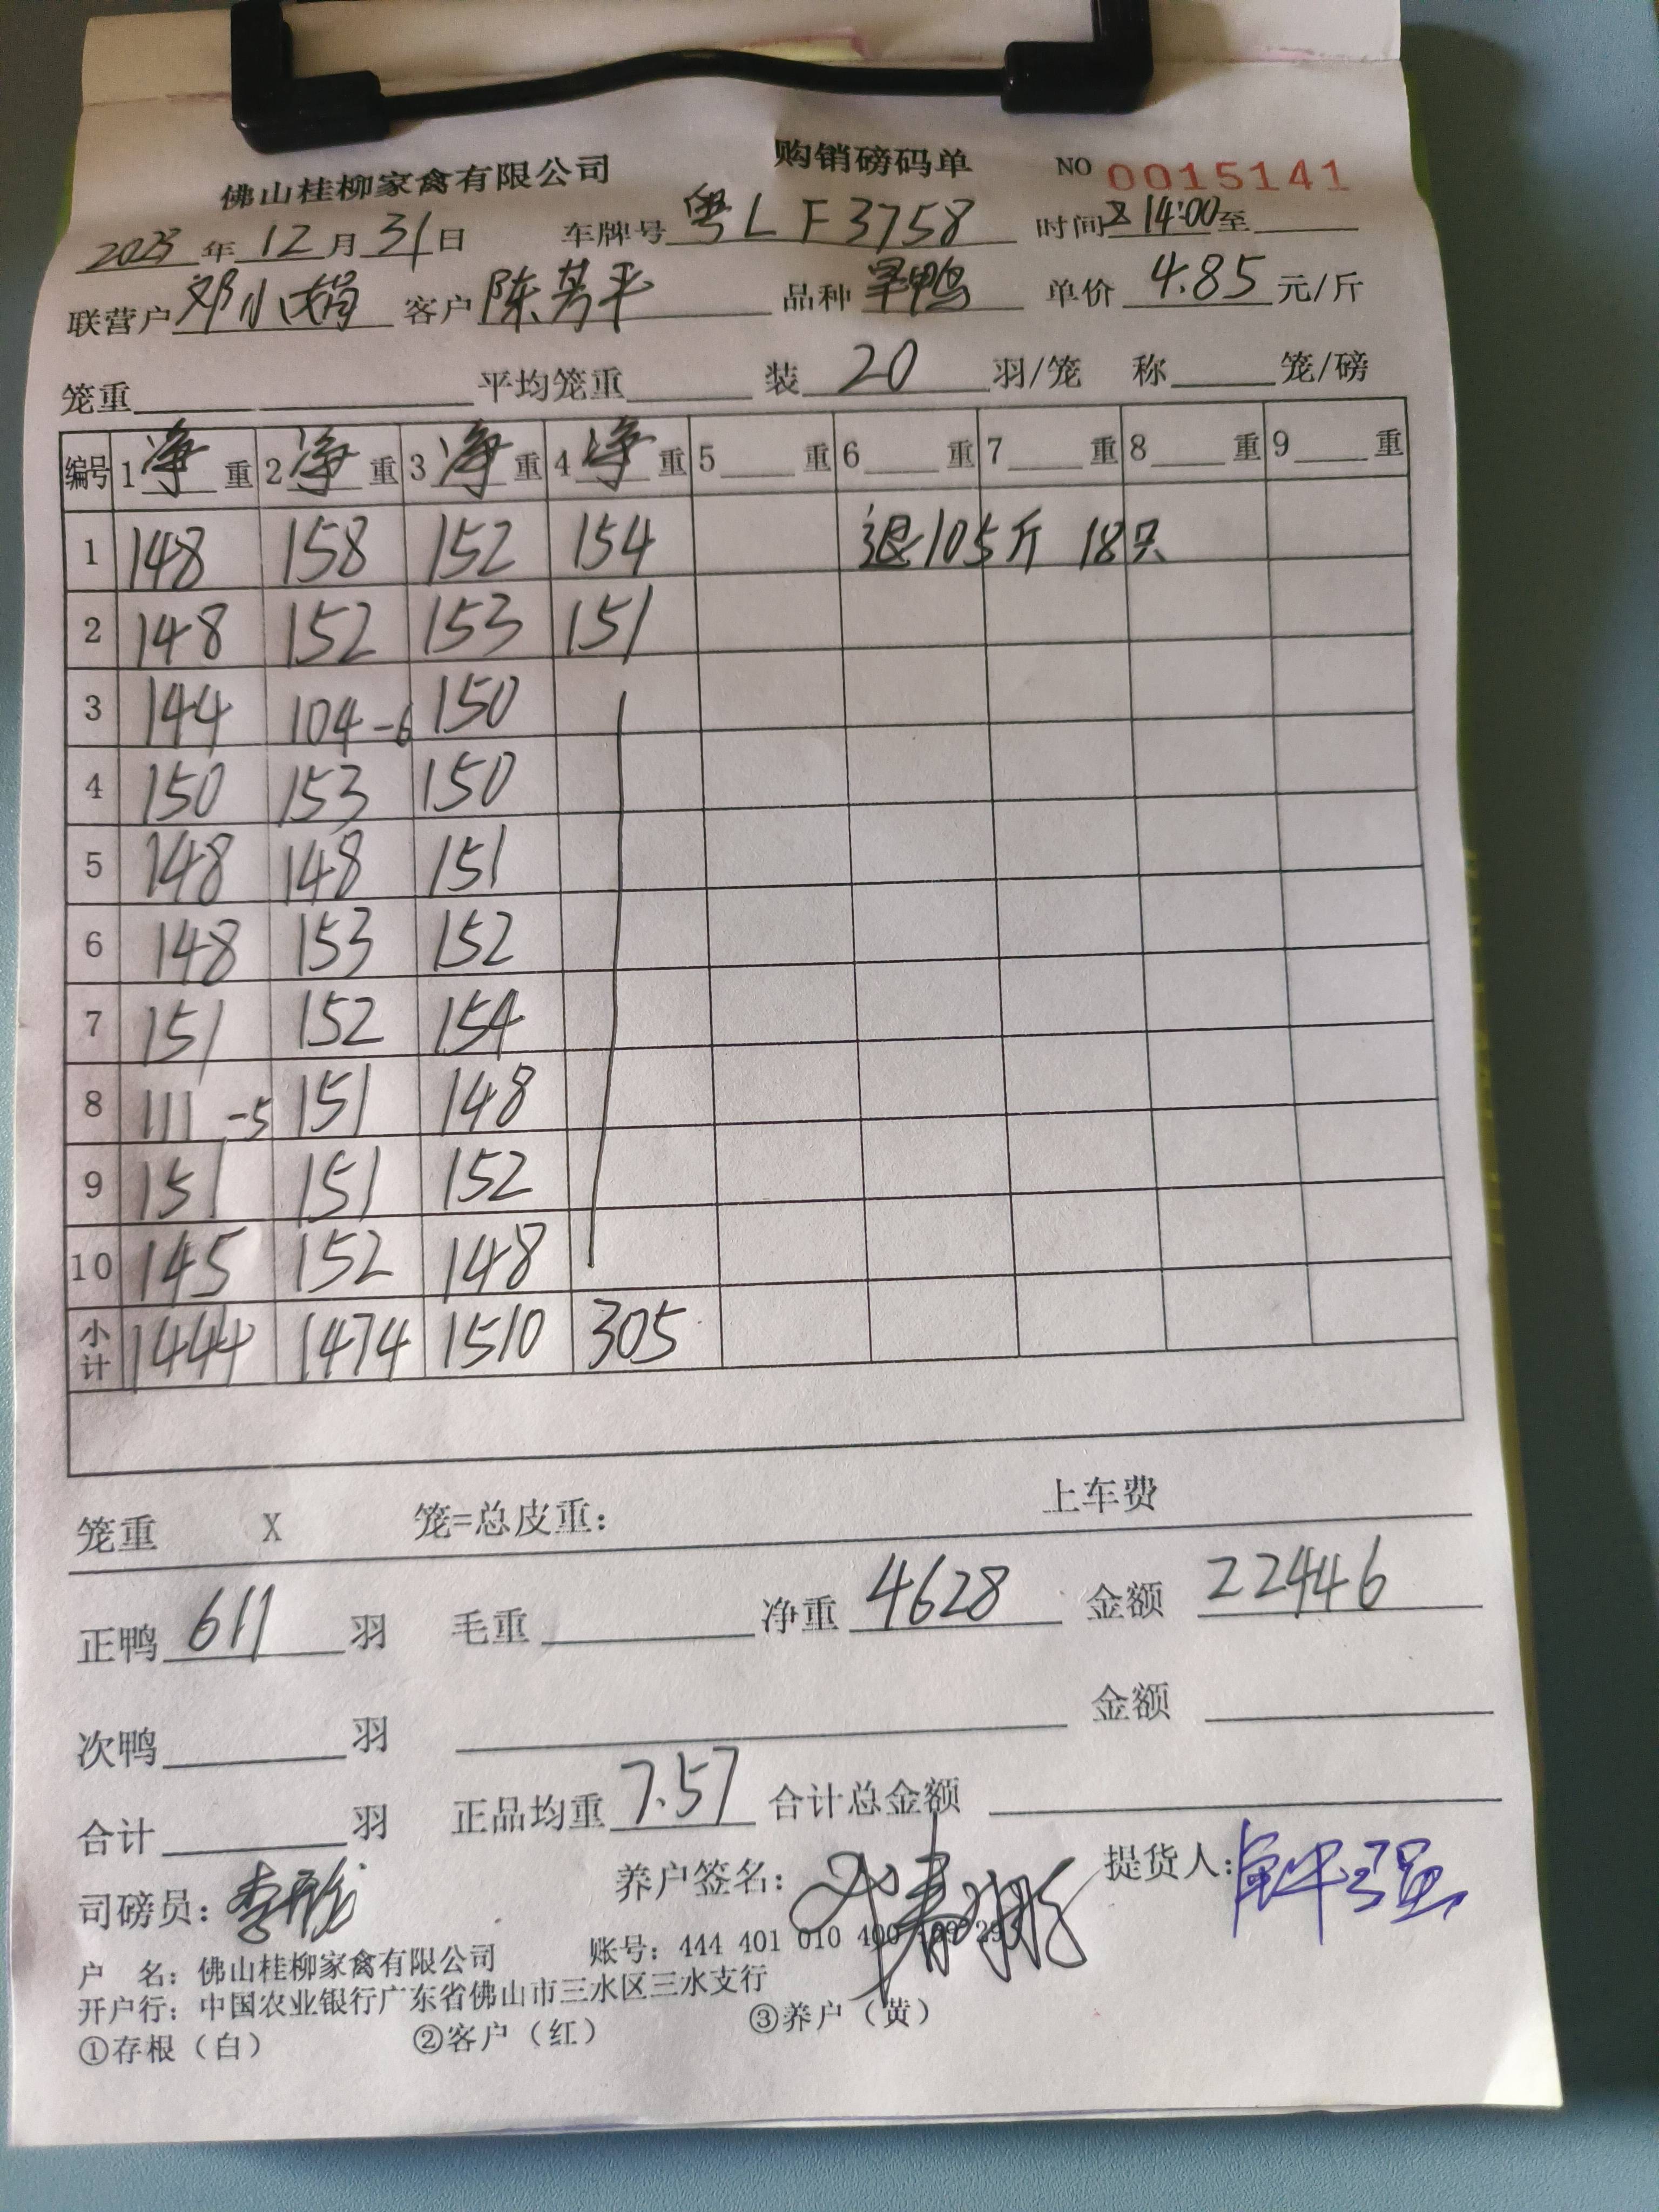 佛山桂柳家禽有限公司 购销磅码单 NO 0015141
2023年12月31日 车牌号 粤LF3758 时间 14:00至
联营户 邓小娟 客户 陈芳平 品种 旱鸭 单价 4.85 元/斤
笼重 平均笼重 装 20 羽/笼 称 笼/磅
编号 1净重 2净重 3净重 4净重 5重 6重 7重 8重 9重
1 148 158 152 154 退105斤 18只
2 148 152 153 151
3 144 104-6 150
4 150 153 150
5 148 148 151
6 148 153 152
7 151 152 154
8 111-5 151 148
9 151 151 152
10 145 152 148
小计 1444 1474 1510 305
笼重 X 笼=总皮重: 上车费
正鸭 611 羽 毛重 净重 4628 金额 22446
次鸭 羽 金额
合计 羽 正品均重 7.57 合计总金额
司磅员: 养户签名: 提货人:
户 名: 佛山桂柳家禽有限公司 账号: 444 401 010 400
开户行: 中国农业银行广东省佛山市三水区三水支行
①存根（白） ②客户（红） ③养户（黄）